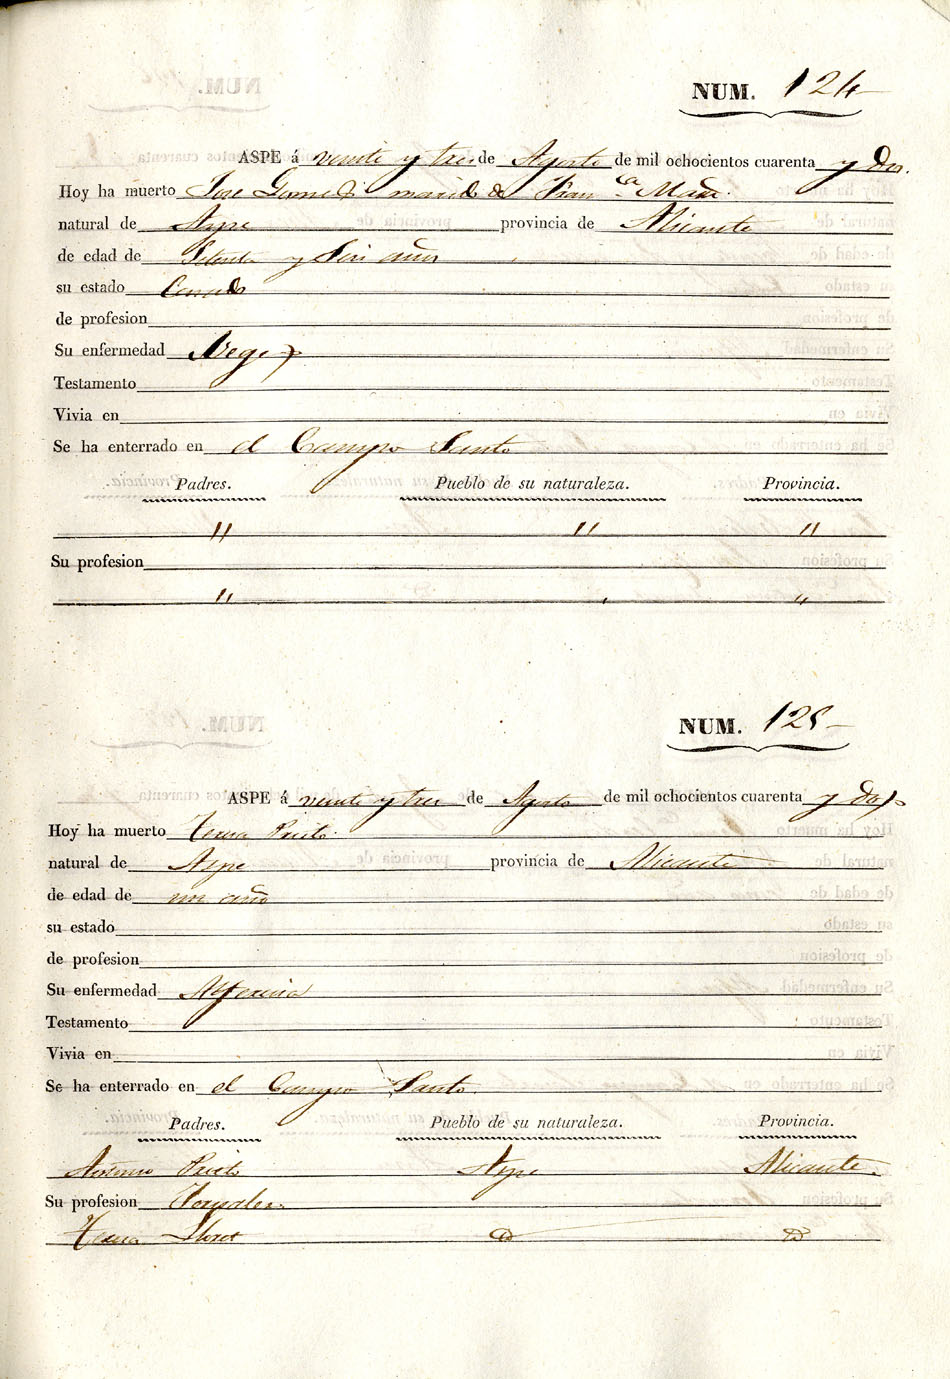 NUM. 124
ASPE á veinte y tres de Agosto de mil ochocientos cuarenta y dos.
Hoy ha muerto Jose marido de Fran.ca
natural de Aspe provincia de Alicante
de edad de Setenta y Seis años
su estado Casado
de profesion
Su enfermedad Vegez
Testamento
Vivia en
Se ha enterrado en el Campo Santo
Padres. Pueblo de su naturaleza. Provincia.
" " "
Su profesion
" "
NUM. 125
ASPE á veinte y tres de Agosto de mil ochocientos cuarenta y dos
Hoy ha muerto Teresa Prieto.
natural de Aspe provincia de Alicante
de edad de un año
su estado
de profesion
Su enfermedad Alferecia
Testamento
Vivia en
Se ha enterrado en el Campo Santo.
Padres. Pueblo de su naturaleza. Provincia.
Antonio Prieto Aspe Alicante.
Su profesion Jornalero.
Teresa Lloret